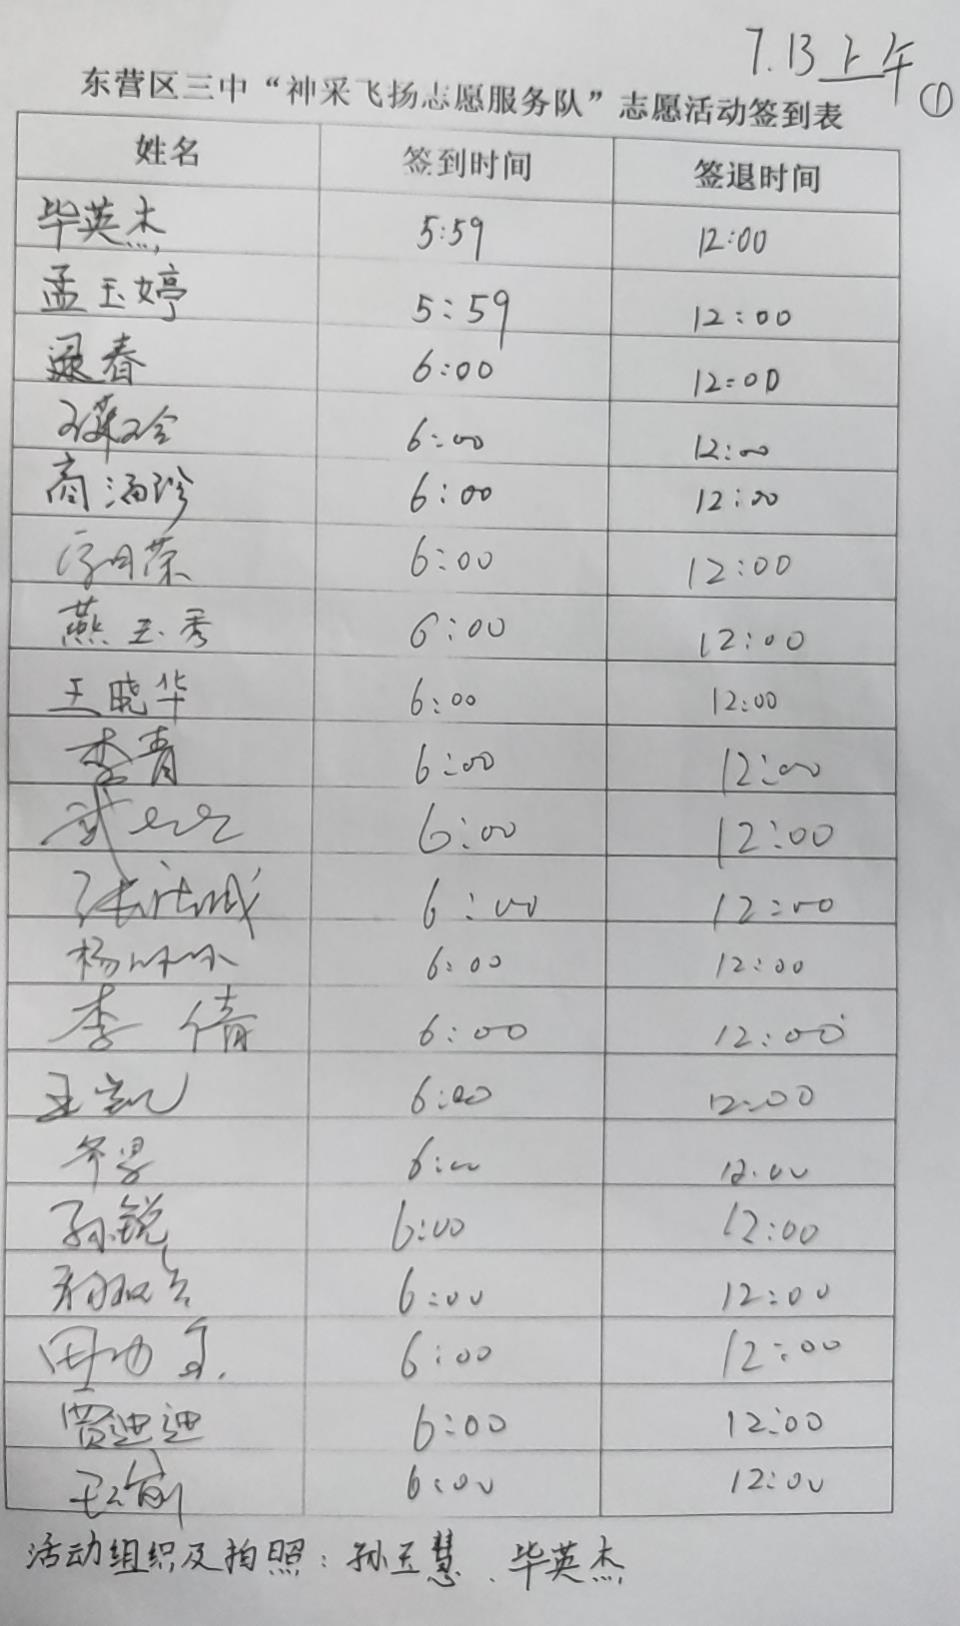 7.13上午
①
东营区三中“神采飞扬志愿服务队”志愿活动签到表
姓名 签到时间 签退时间
毕英杰 5:59 12:00
孟玉婷 5:59 12:00
梁春 6:00 12:00
6:00 12:00
商海珍 6:00 12:00
6:00 12:00
燕玉秀 6:00 12:00
王晓华 6:00 12:00
李青 6:00 12:00
武 6:00 12:00
张 6:00 12:00
杨 6:00 12:00
李倩 6:00 12:00
王凯 6:00 12:00
6:00 12:00
孙锐 6:00 12:00
6:00 12:00
6:00 12:00
贾迪迪 6:00 12:00
6:00 12:00
活动组织及拍照：孙玉慧、毕英杰